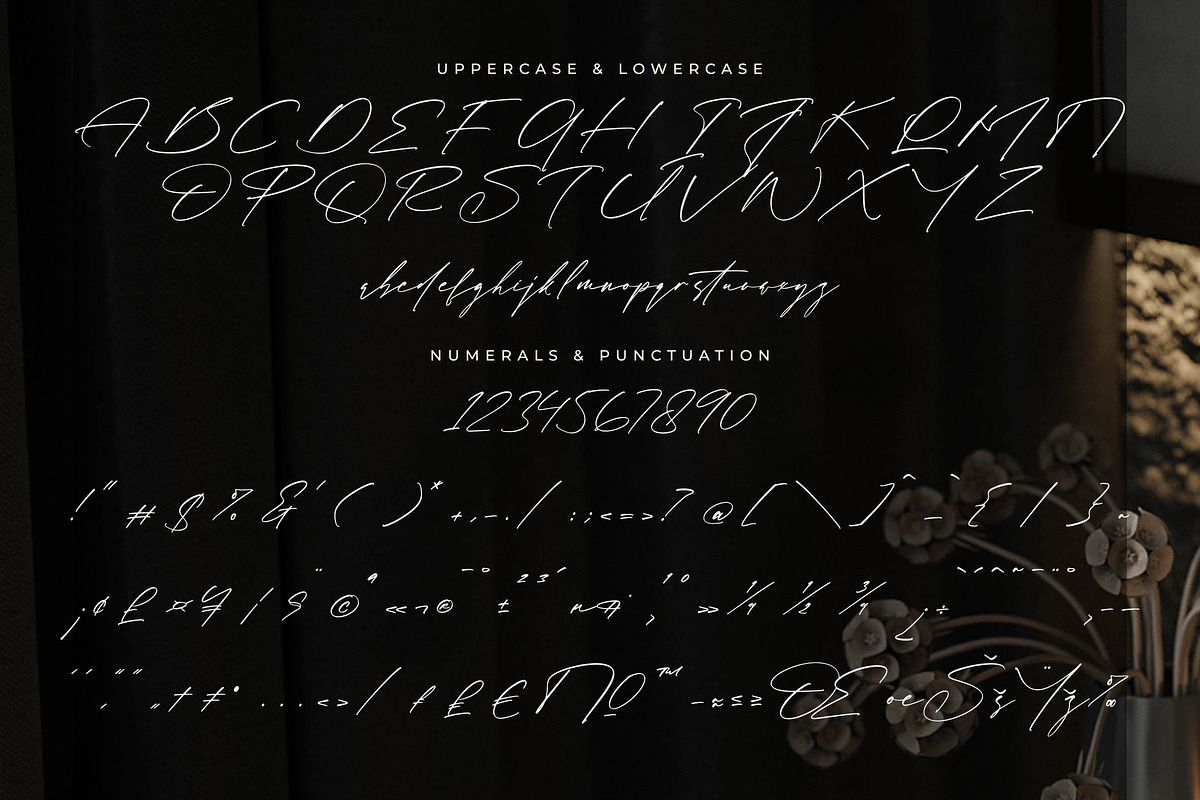 UPPERCASE & LOWERCASE
ABCDEFGHIJKLMN
OPQRSTUVWXYZ
abcdefghijklmnopqrstuvwxyz
NUMERALS & PUNCTUATION
1234567890
!"#$%&'()*+,-./:;<=>?@[\]^_`{|}~
¡¢£¤¥¦§¨©ª«¬®¯°±²³´µ¶·¸¹º»¼½¾¿÷ˋˊˆ˜¯¨˚¸–—
‘’‚“”„†‡•...‹›⁄ƒ₤€∏º™−≈≤≥ŒœŠšŸž‰